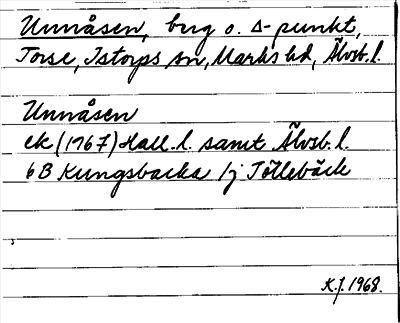 Unnåsen, berg o. Δ-punkt,
Torse, Istorps sn, Marks hd, Älvsb. l.
Unnåsen
ek (1967) Hall. l. samt Älvsb. l.
6B Kungsbacka 1j Töllebäck
K.J. 1968.